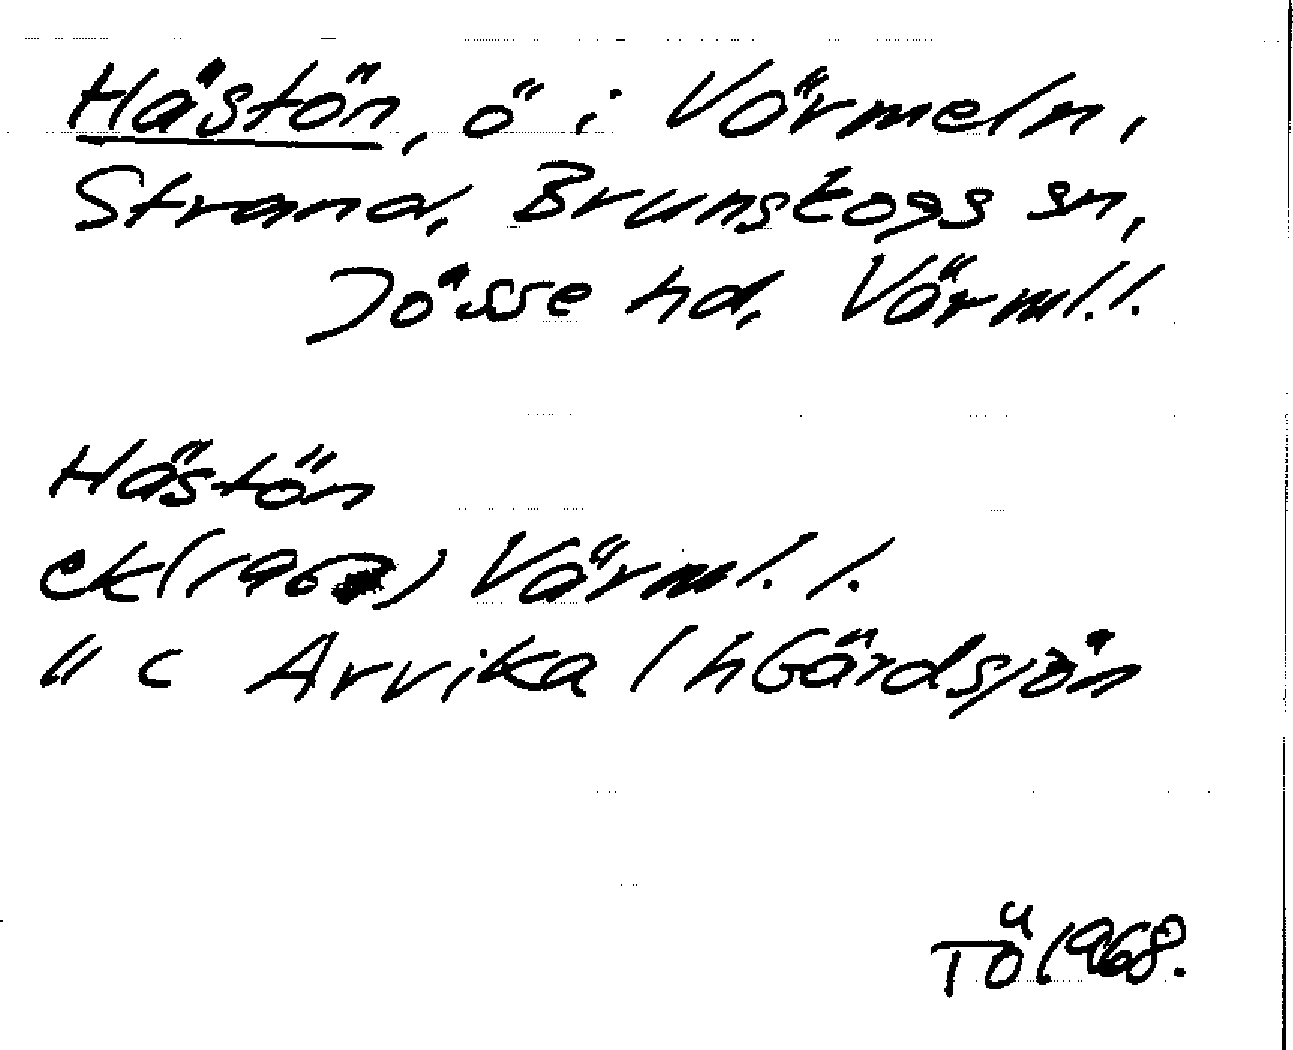 Hästön, ö i Värmeln,
Strand, Brunskogs sn,
Jösse hd, Värml. l.
Hästön
ek(1967) Värml. l.
" c Arvika l h Gärdsjön
TÖ 1968.